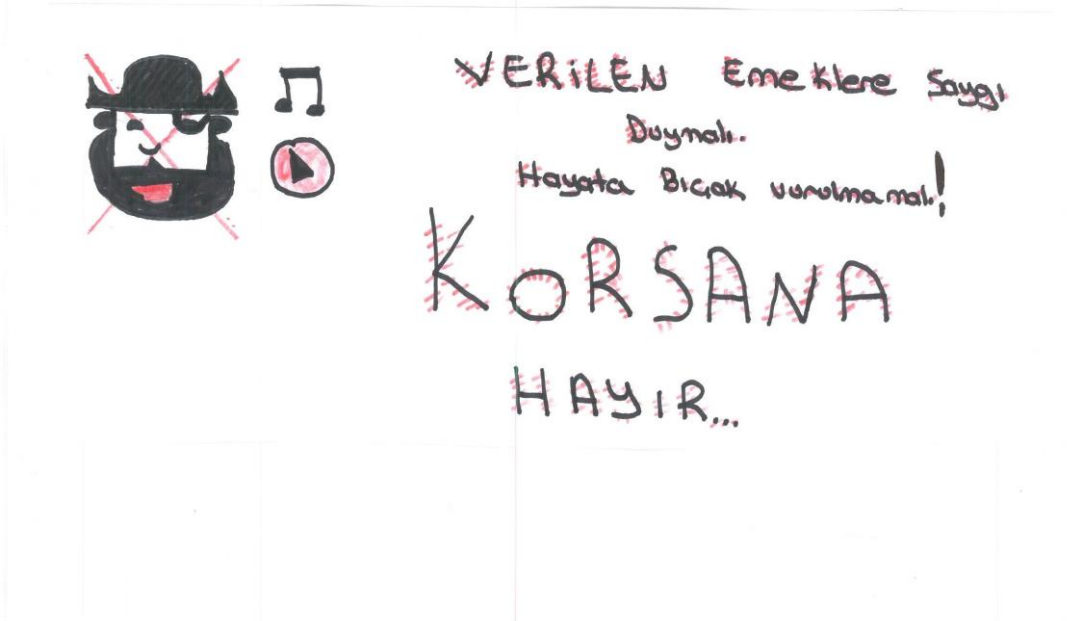 VERİLEN Emeklere Saygı
Duymalı.
Hayata Bıçak vurulmamalı!
KORSANA
HAYIR...